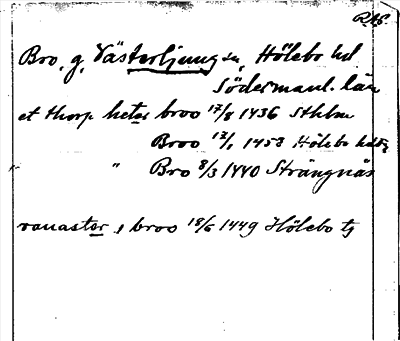 RAP.
Bro, g. Västerljung sn, Hölebo hd
Södermanl. län
et thorp heter broo 17/8 1436 Sthlm
Broo 13/1 1453 Hölebo hdtg
" Bro 8/3 1440 Strängnäs
vanaster j broo 18/6 1449 Hölebo tg